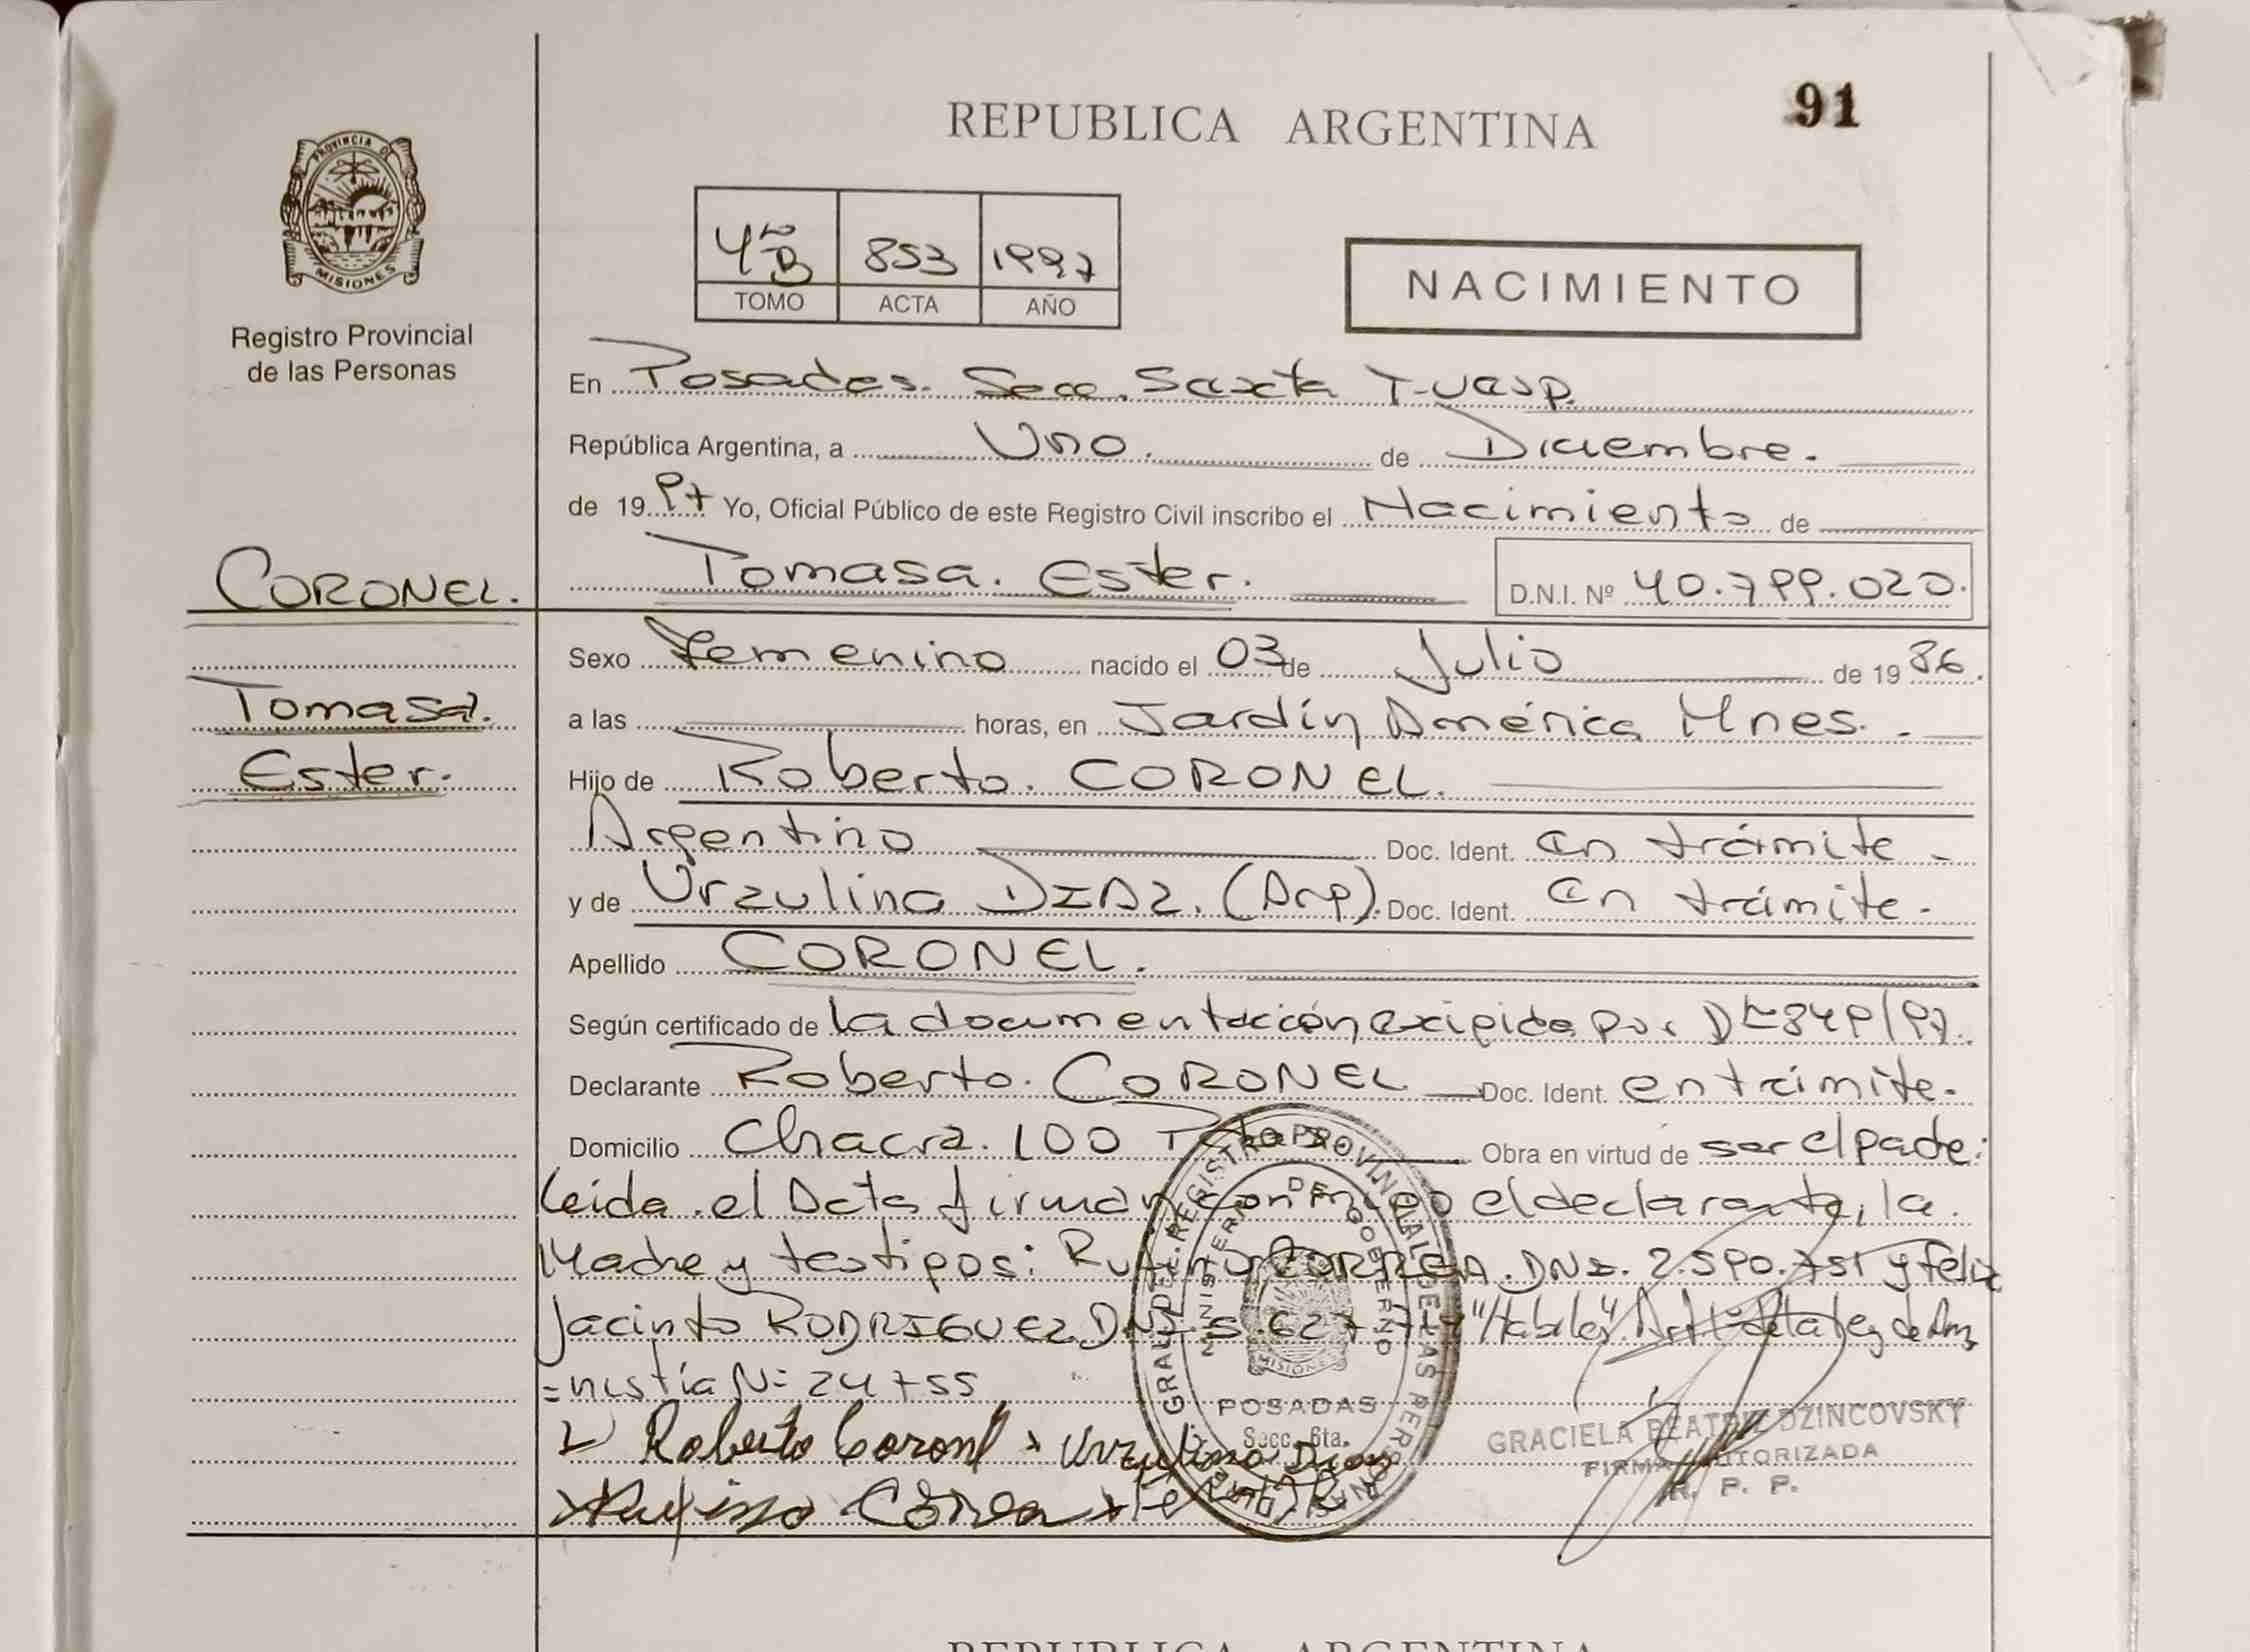 REPUBLICA ARGENTINA
91
PROVINCIA DE
MISIONES
Registro Provincial
de las Personas
4º B 853 1997
TOMO ACTA AÑO
NACIMIENTO
En Posadas. Secc. Sexta
República Argentina, a Uno. de Diciembre.
de 1997 Yo, Oficial Público de este Registro Civil inscribo el Nacimiento de
CORONEL.
Tomasa. Ester.
D.N.I. Nº 40.799.020.
Sexo Femenino nacido el 03 de Julio de 1986.
Tomasa.
a las horas, en Jardín América Mnes.
Ester.
Hijo de Roberto. CORONEL.
Argentino Doc. Ident. en trámite
y de Urzulina DIAZ. (Arg). Doc. Ident. en trámite.
Apellido CORONEL.
Según certificado de la documentación exigida por Dº 849/97.
Declarante Roberto. CORONEL Doc. Ident. en trámite.
Domicilio Chacra. 100 Pdas. Obra en virtud de ser el padre:
leida el Acta firman conmigo el declarante, la
Madre y testigos: Rufino CORREA. DNI. 2.590.751 y Felix
Jacinto RODRIGUEZ DNI 5.627 "Habiles" Art 1º de la ley de Am
=nistía Nº 24755
Roberto Coronel Urzulina Diaz
Rufino Correa
GRAL. DEL REGISTRO PROVINCIAL DE LAS PERSONAS
MINISTERIO DE GOBIERNO
MISIONES
POSADAS
Secc. 6ta.
GRACIELA BEATRIZ DZINCOVSKY
FIRMA AUTORIZADA
R. P. P.
REPUBLICA ARGENTINA